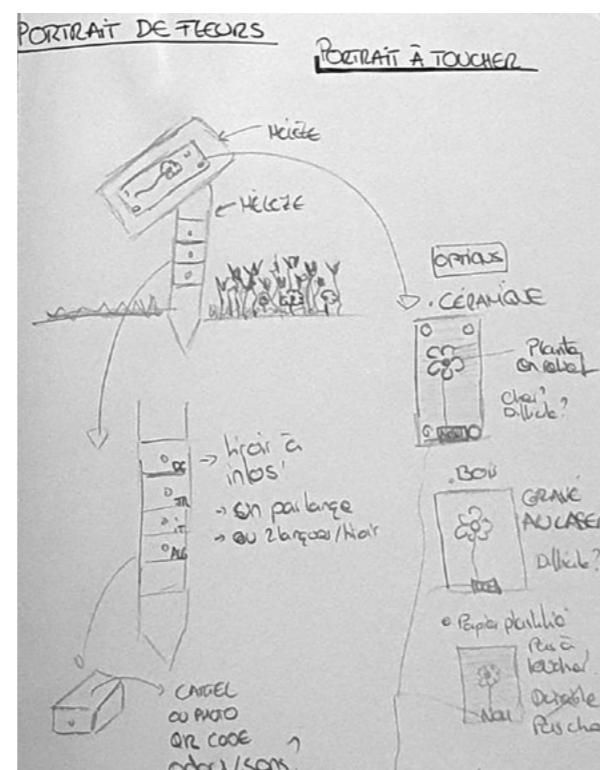 PORTRAIT DE FLEURS
PORTRAIT À TOUCHER
MÉLÈZE
MÉLÈZE
OPTIONS
. CÉRAMIQUE
Plante
en relief
Cher?
Difficile?
NOM
tiroir à
infos
→ en par langue
→ ou 2 langues/tiroir
FR
IT
. BOIS
GRAVÉ
AU LASER
Difficile?
• Papier plastifié
Pas à
toucher
Durable
Pas cher
NOM
CARTEL
OU PHOTO
QR CODE
odeur/sons ?